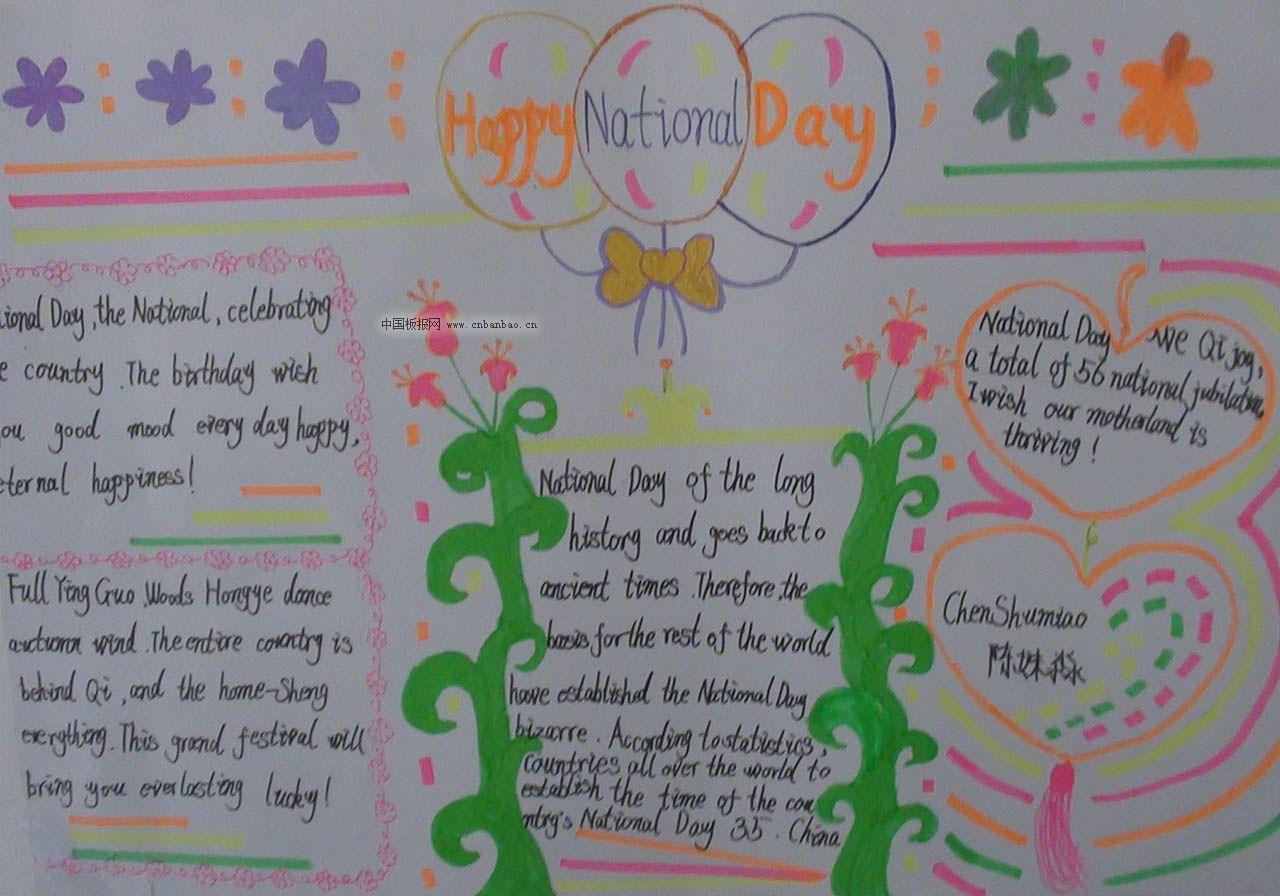 Happy National Day
中国板报网 www.cnbanbao.cn
ional Day, the National, celebrating
e country. The birthday wish
ou good mood every day happy,
eternal happiness!
Full Ying Guo, Woods Hongye dance
autumn wind. The entire country is
behind Qi, and the home-Sheng
everything. This grand festival will
bring you everlasting lucky!
National Day of the long
history and goes back to
ancient times. Therefore, the
basis for the rest of the world
have established the National Day
bizarre. According to statistics,
countries all over the world to
establish the time of the cou
ntry's National Day 35. China
National Day, We Qi joy,
a total of 56 national jubilation,
I wish our motherland is
thriving!
Chen Shumiao
陈姝淼